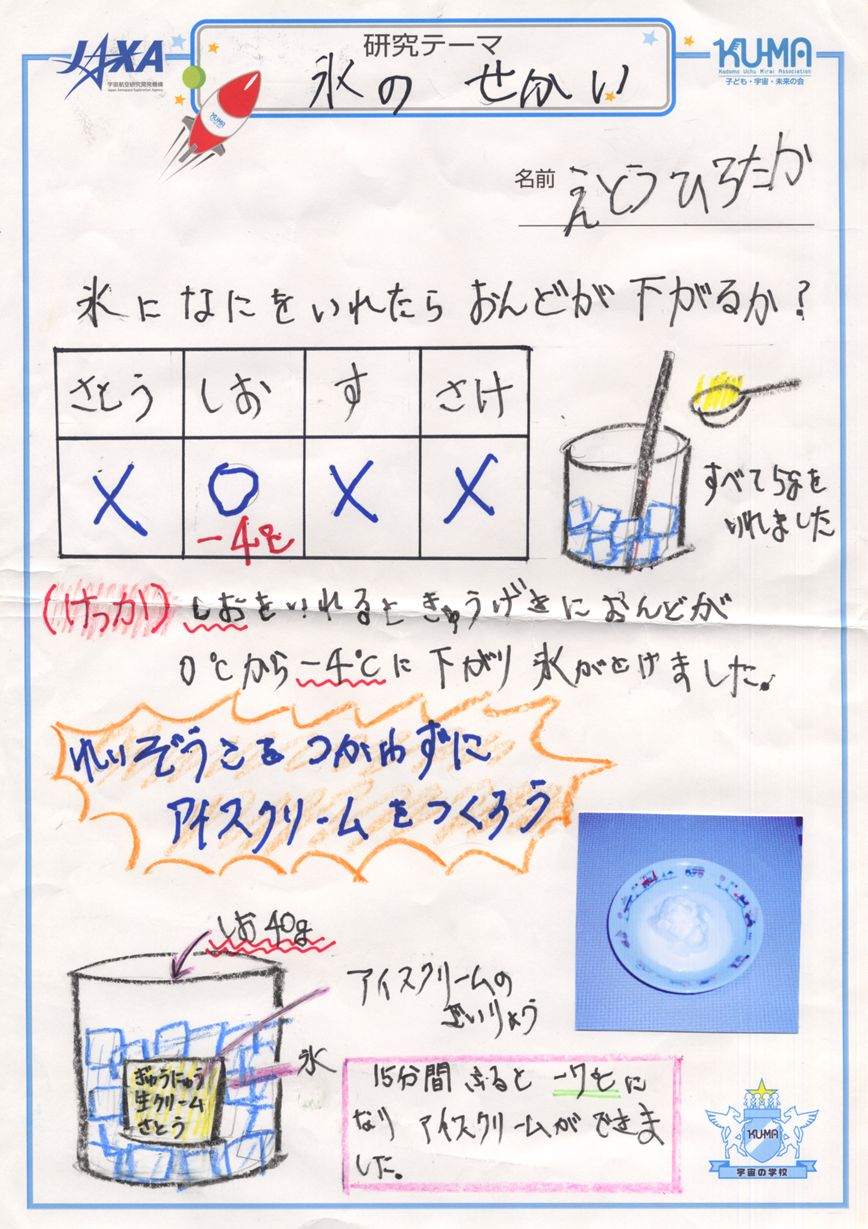 JAXA
宇宙航空研究開発機構
Japan Aerospace Exploration Agency
研究テーマ
氷の せかい
KUMA
Kodomo Uchu Mirai Association
子ども・宇宙・未来の会
KUMA
名前 えとうひろたか
氷になにをいれたら おんどが 下がるか?
さとう しお す さけ
X O X X
-4℃
すべて5gを
いれました
(けっか) しおをいれると きゅうげきに おんどが
0℃から -4℃に 下がり 氷がとけました。
れいぞうこをつかわずに
アイスクリームをつくろう
しお40g
アイスクリームの
ざいりょう
氷
ぎゅうにゅう
生クリーム
さとう
15分間 ふると -7℃に
なり アイスクリームが できま
した。
KUMA
宇宙の学校